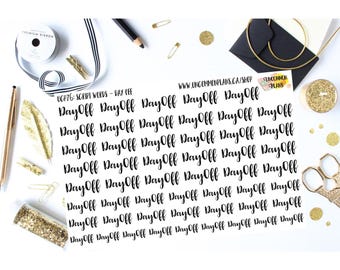 PREMIUM RIBBON
SCRIPT WORDS - DAY OFF
WWW.UNCOMMONPLANS.CA/SHOP
UNCOMMON PLANS
DayOff DayOff DayOff DayOff DayOff
DayOff DayOff DayOff DayOff DayOff DayOff
DayOff DayOff DayOff DayOff DayOff DayOff
DayOff DayOff DayOff DayOff DayOff DayOff
DayOff DayOff DayOff DayOff DayOff DayOff DayOff
DayOff DayOff DayOff DayOff DayOff DayOff DayOff
DayOff DayOff DayOff DayOff DayOff DayOff DayOff
DayOff DayOff DayOff DayOff DayOff DayOff DayOff DayOff DayOff